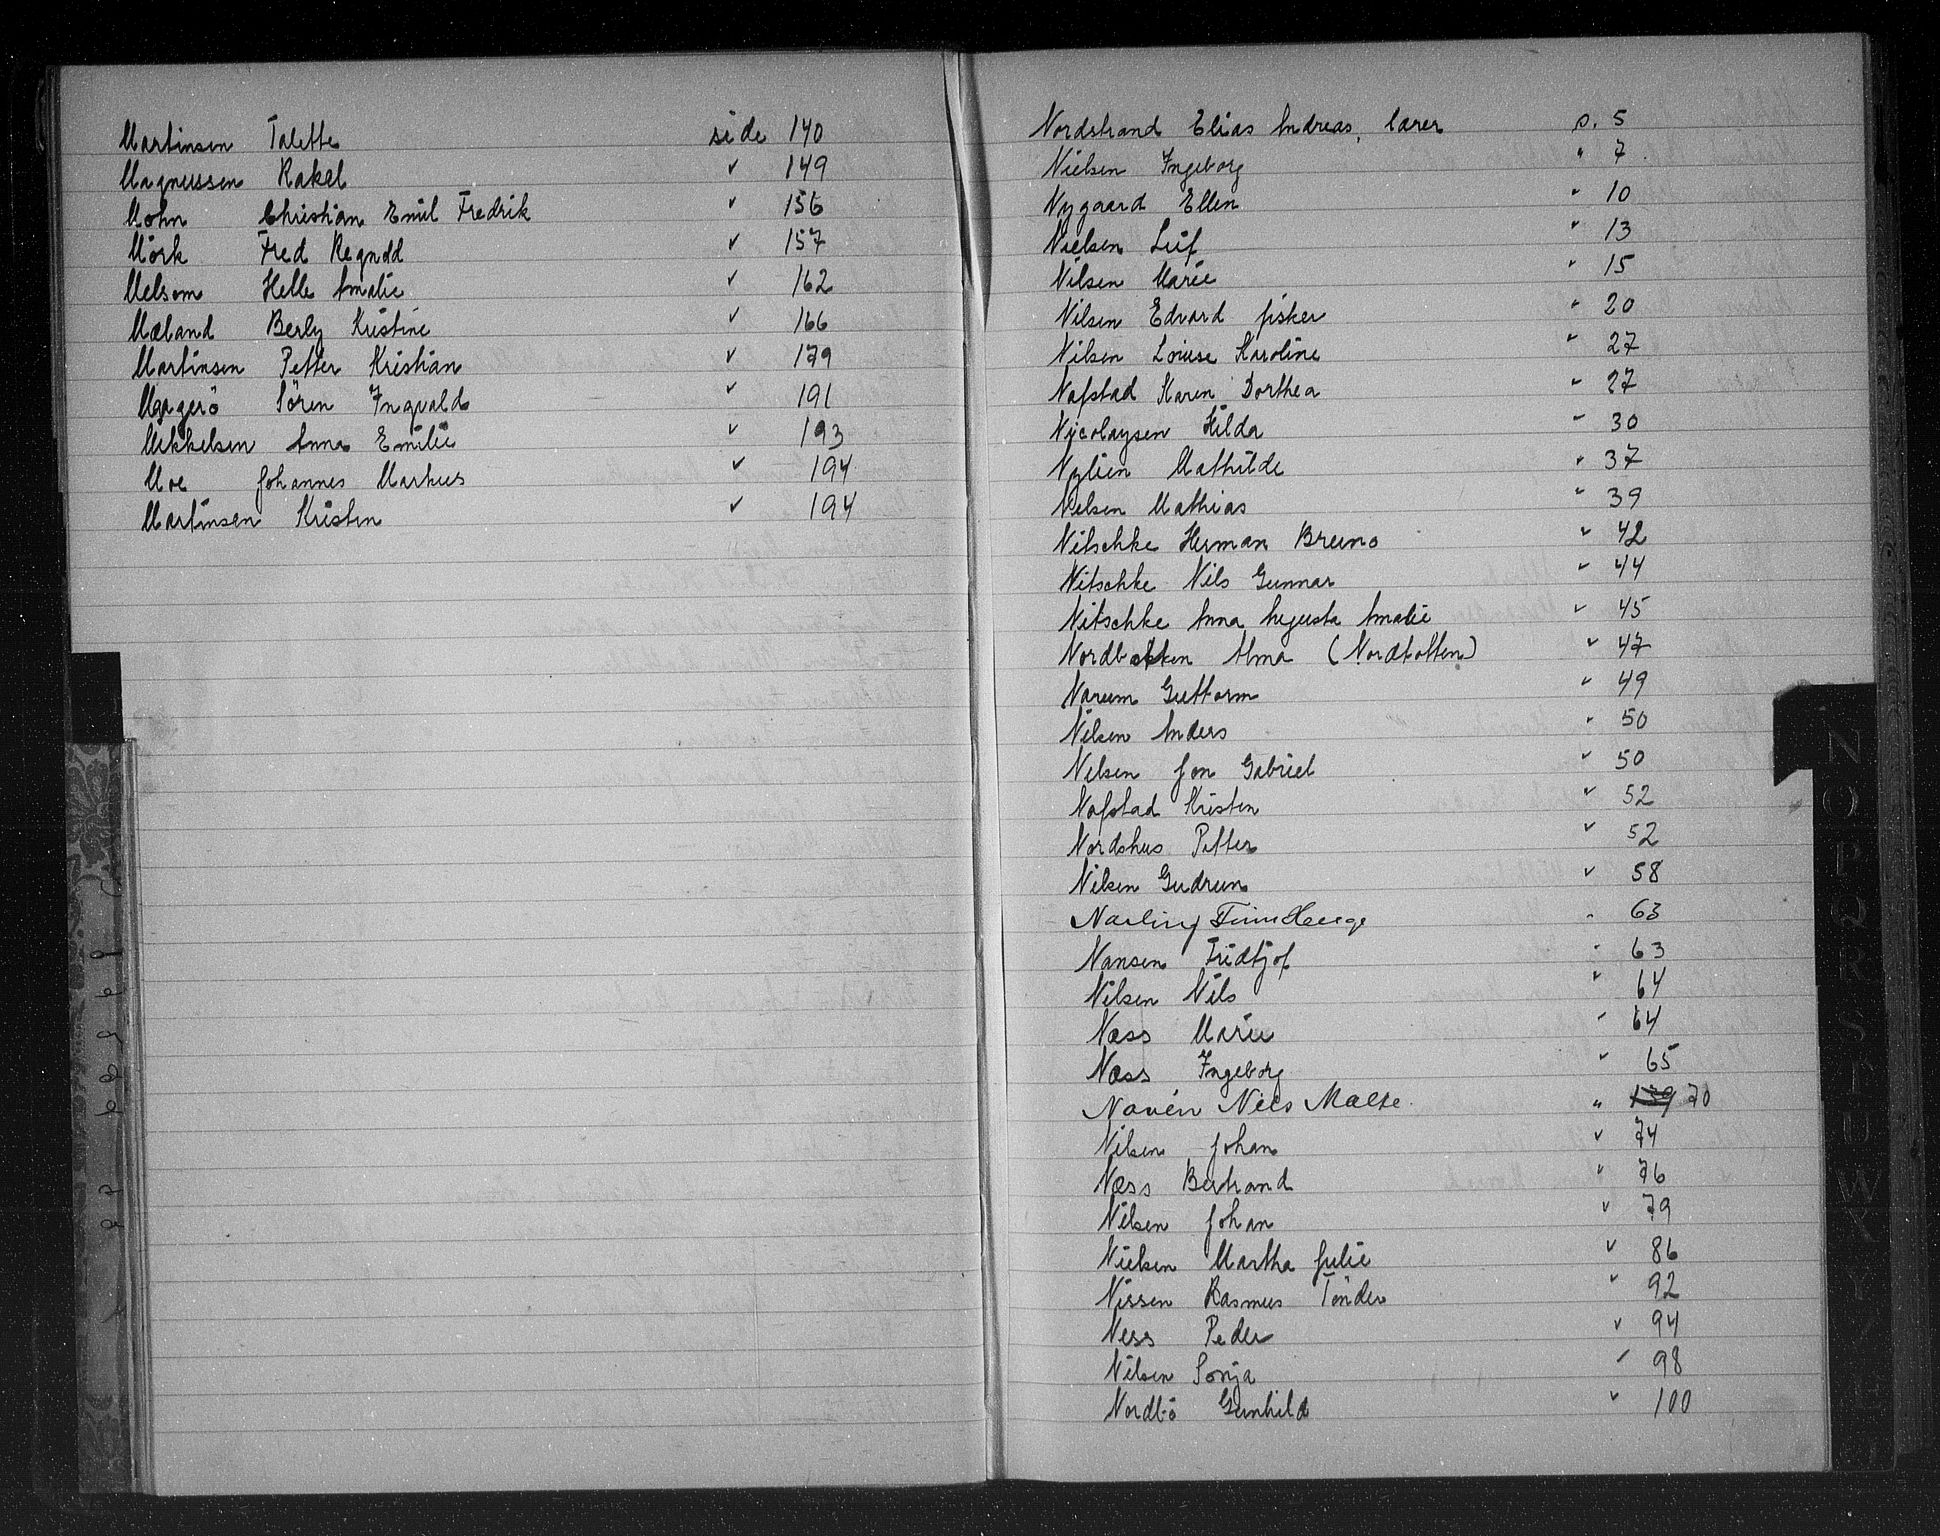 Martinsen Talette side 140
Magnussen Rakel " 149
Mohn Christian Emil Fredrik " 156
Mörk Fred " 157
Melsom Helle Amalie " 162
Mæland Berly Kristine " 166
Martinsen Petter Kristian " 179
Magerö Sören Ingvald " 191
Mikkelsen Anna Emilie " 193
Moe Johannes Markus " 194
Martinsen Kristen " 194
Nordstrand Elias Andreas, lærer s. 5
Nielsen Ingeborg " 7
Nygaard Ellen " 10
Nielsen Leif " 13
Nilsen Marie " 15
Nilsen Edvard fisker " 20
Nilsen Louise Karoline " 27
Nafstad Karen Dorthea " 27
Nicolaysen Hilda " 30
Nylien Mathilde " 37
Nilsen Mathias " 39
Nitschke Herman Bruno " 42
Nitschke Nils Gunnar " 44
Nitschke Anna Augusta Amalie " 45
Nordbakken Alma (Nordbotten) " 47
Narum Guttorm " 49
Nilsen Anders " 50
Nilsen Jon Gabriel " 50
Nafstad Kristen " 52
Nordshus Petter " 52
Nilsen Gudrun " 58
Narling Finn Hauge " 63
Nansen Fridtjof " 63
Nilsen Nils " 64
Næss Marie " 64
Næss Ingeborg " 65
Navén Nils Malte " 139 70
Nilsen Johan " 74
Næss Bertrand " 76
Nilsen Johan " 79
Nielsen Martha Julie " 86
Nissen Rasmus Tönder " 92
Ness Peder " 94
Nilsen Sonja " 98
Nordbö Gunhild " 100
N
O
P
Q
R
S
T
U
W
X
Y